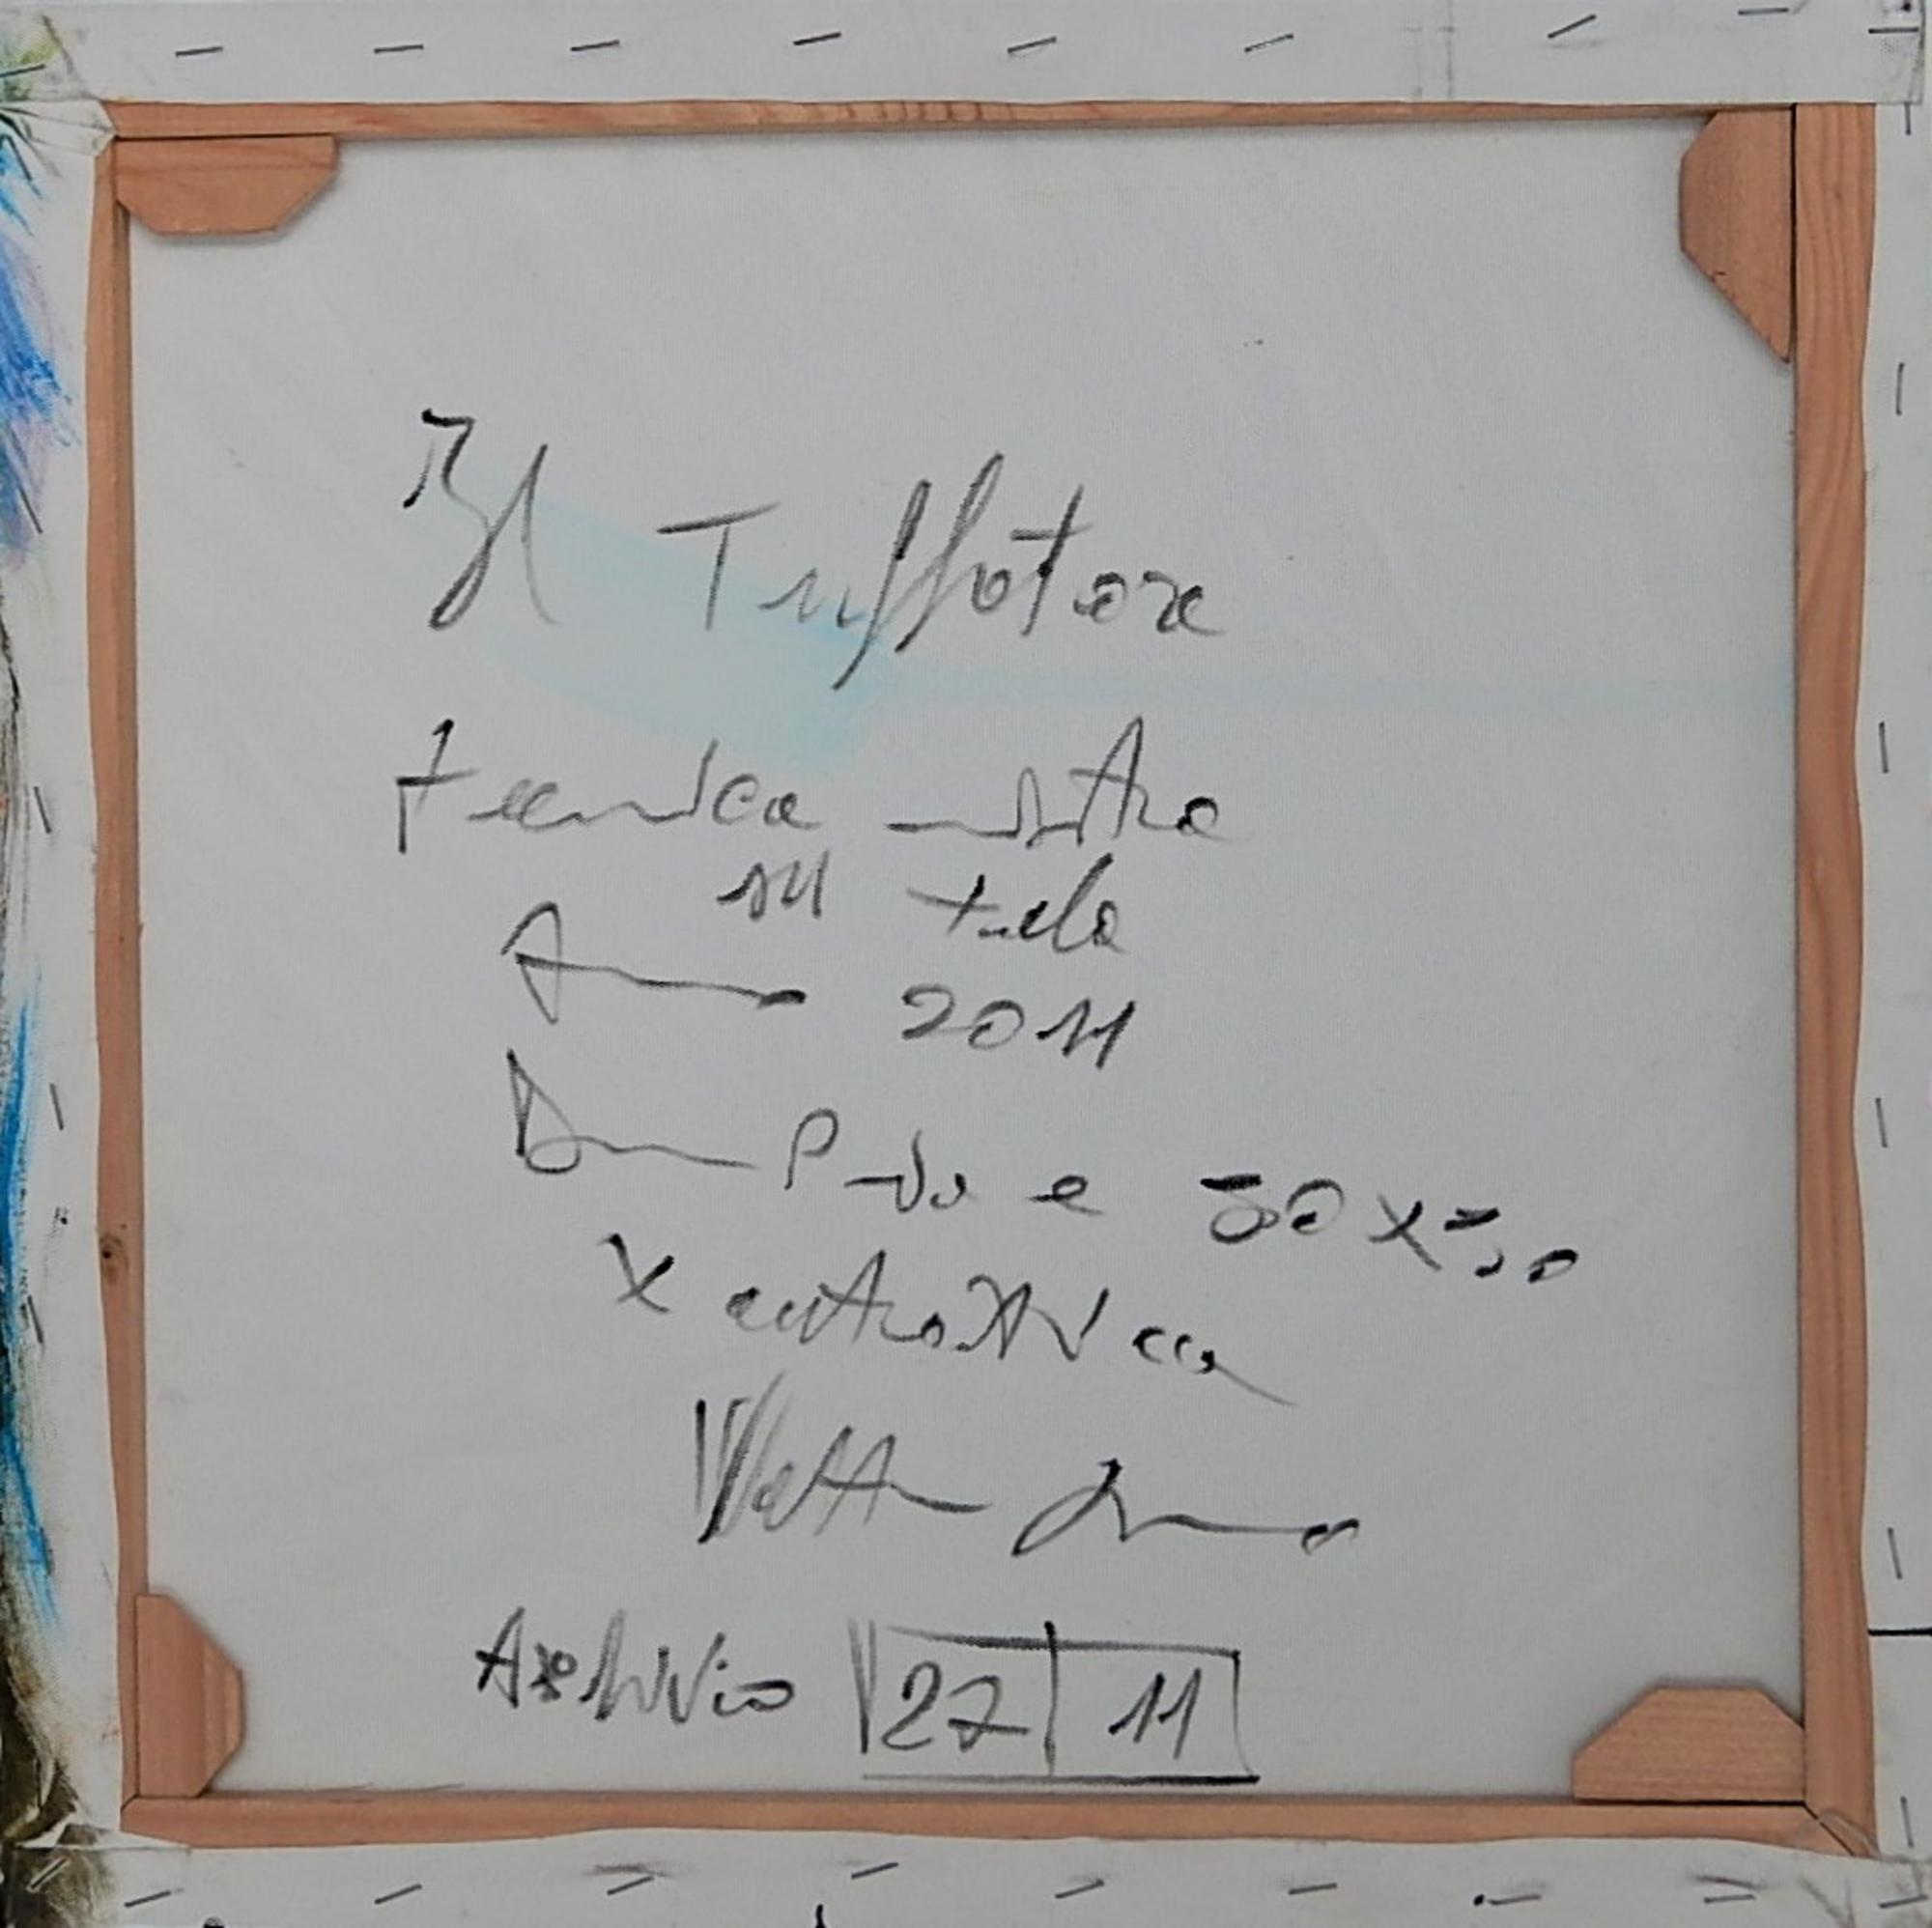 Il Tuffatore
tecnica mista
su tela
Anno 2011
Dim 50x50
x autentica
Archivio 27 11